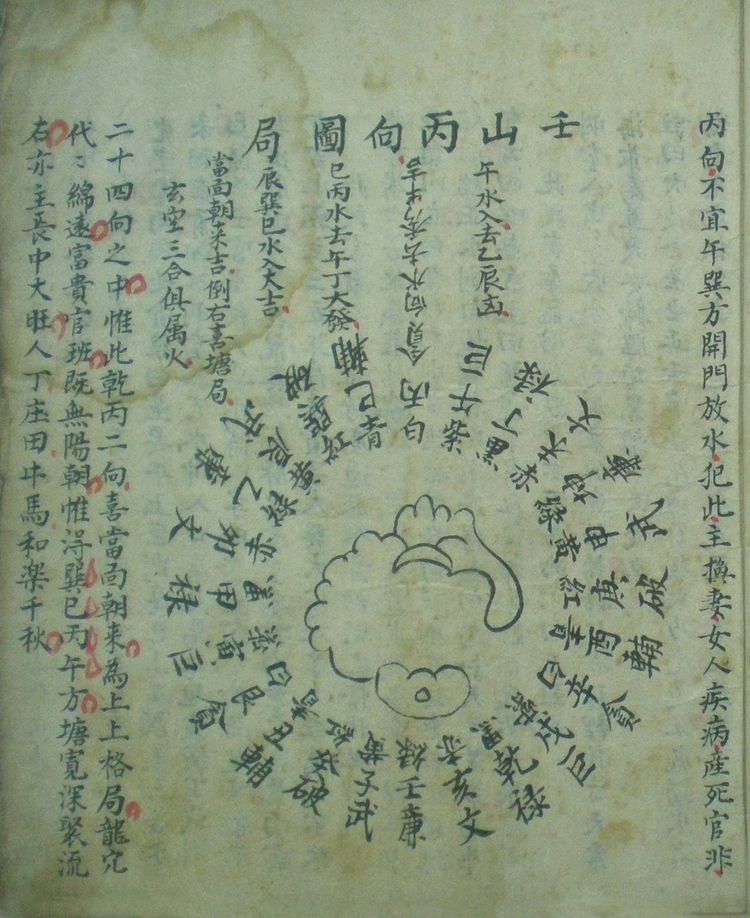 丙向不宜午巽方開門放水犯此主換妻女人疾病產死官非
壬山丙向圖局
午水入去乙辰凶
貪向水去秀才吉
巳丙水去午丁大發
辰巽巳水入大吉
當面朝來吉倒右喜塘局
玄空三合俱属火
二十四向之中惟此乾丙二向喜當面朝來為上上格局龍穴
代々綿遠富貴官班既無陽朝惟得巽巳丙午方塘寬深聚流
右亦主長中大旺人丁庄田牛馬和樂千秋
白丙貪
紫午巨
黑丁祿
坤文
申廉
紅庚武
青酉破
辛輔
戌貪
乾巨
亥祿
綠壬文
子武廉
癸破
丑輔
白艮貪
寅巨
甲祿
卯文
乙廉
辰武
巽破
青巳輔